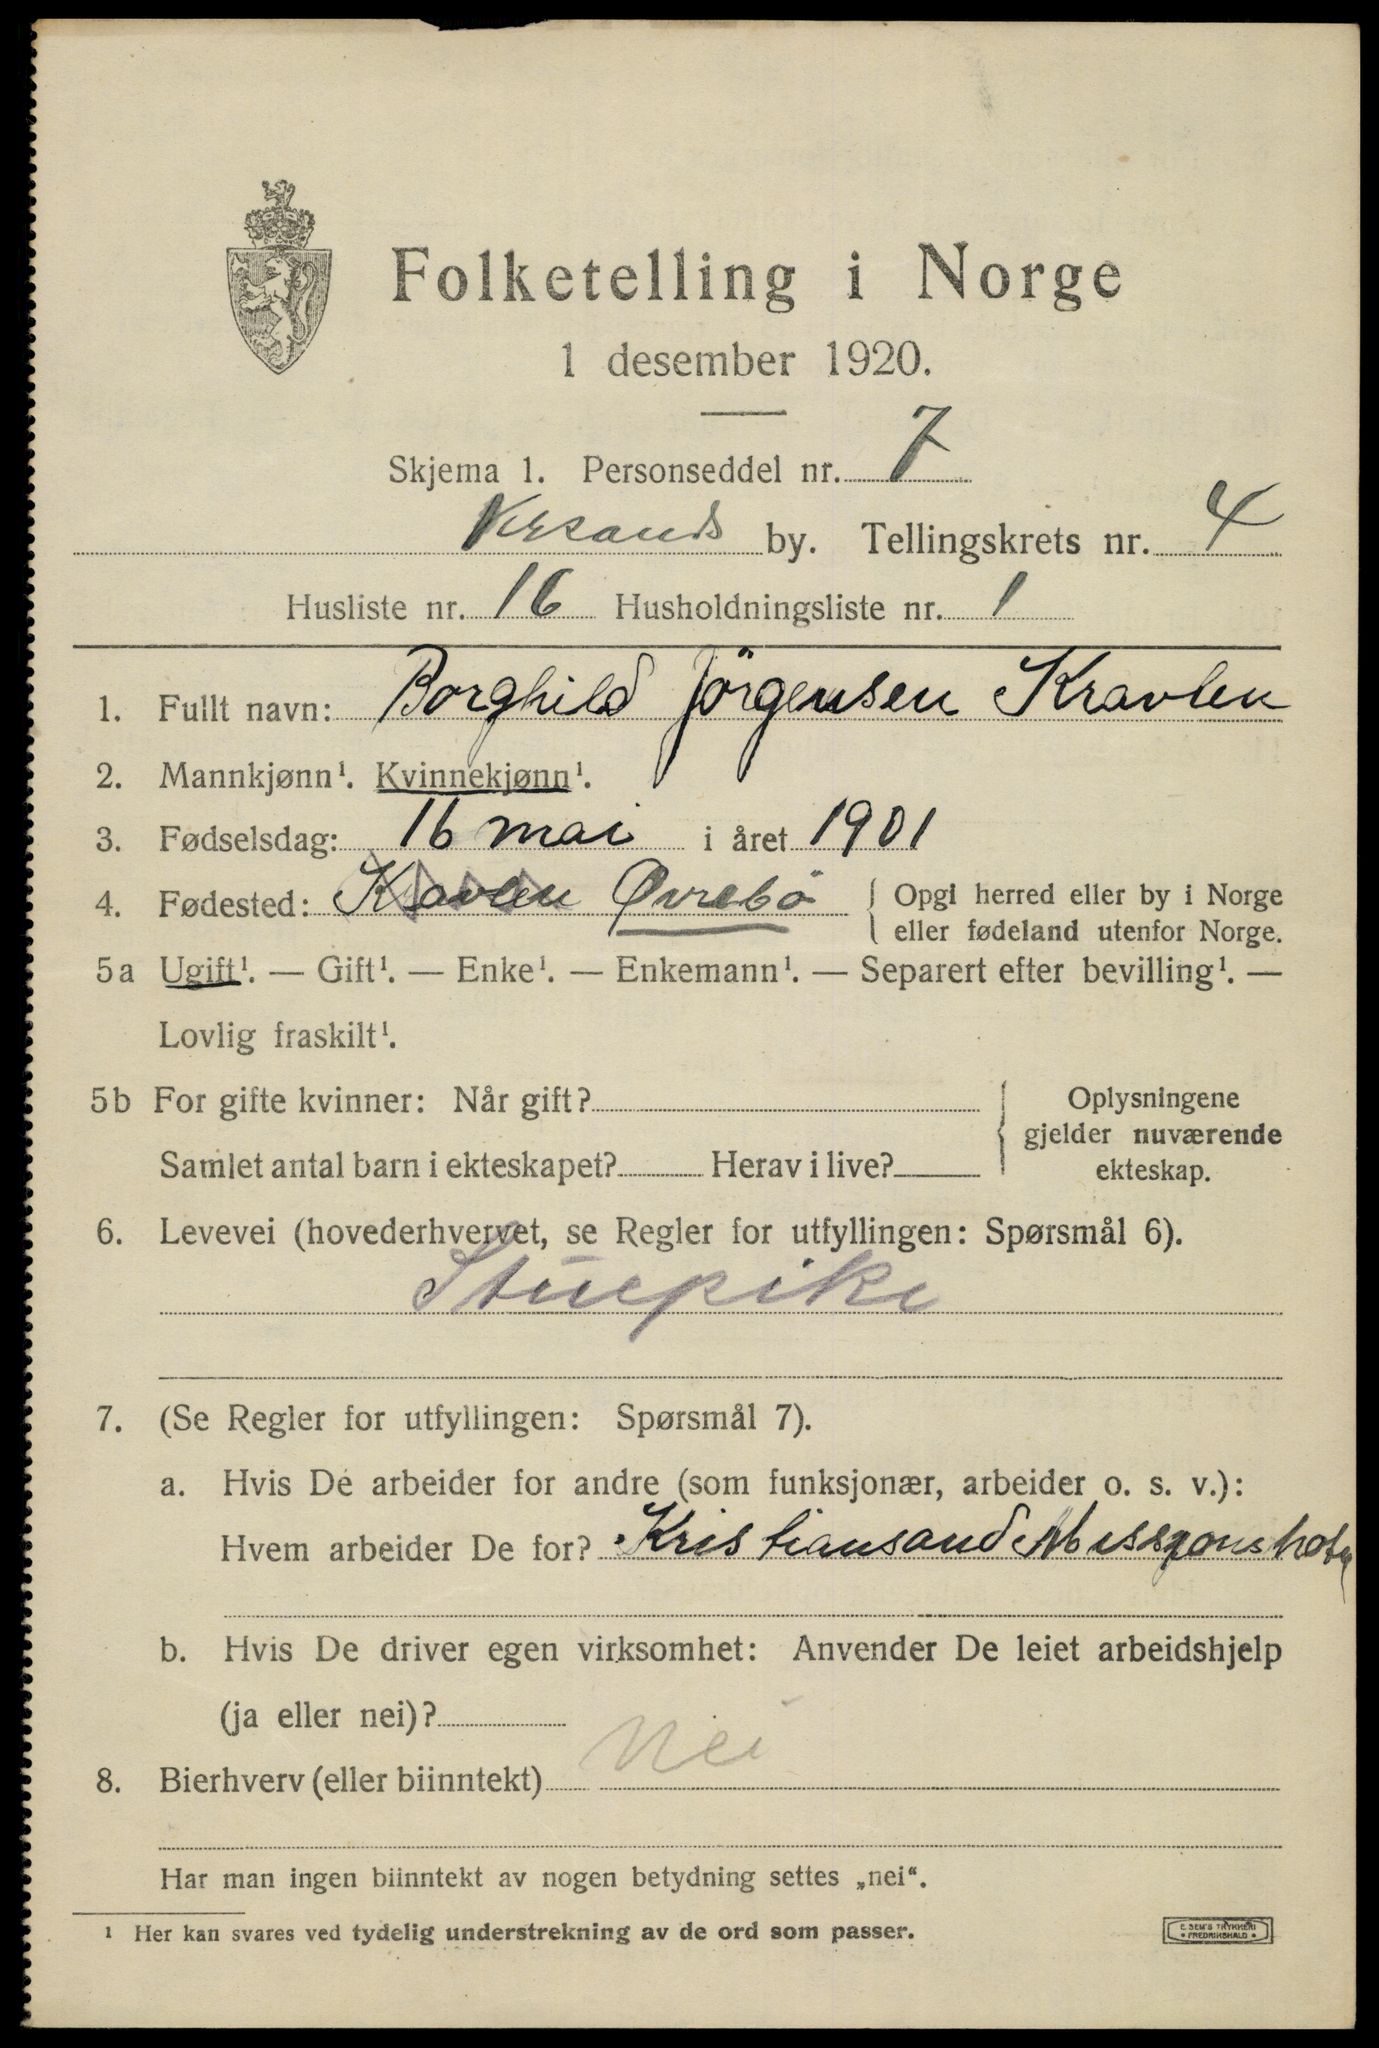 Folketelling i Norge
1 desember 1920.
Skjema 1. Personseddel nr. 7
Krsands by. Tellingskrets nr. 4
Husliste nr. 16 Husholdningsliste nr. 1
1. Fullt navn: Borghild Jörgensen Kravlen
2. Mannkjønn¹. Kvinnekjønn¹.
3. Fødselsdag: 16 mai i året 1901
4. Fødested: Kravlen Øvrebö { Opgi herred eller by i Norge
eller fødeland utenfor Norge.
5a Ugift¹. — Gift¹. — Enke¹. — Enkemann¹. — Separert efter bevilling¹. —
Lovlig fraskilt¹.
5b For gifte kvinner: Når gift? { Oplysningene
gjelder nuværende
Samlet antal barn i ekteskapet? Herav i live? ekteskap.
6. Levevei (hovederhvervet, se Regler for utfyllingen: Spørsmål 6).
Stuepike
7. (Se Regler for utfyllingen: Spørsmål 7).
a. Hvis De arbeider for andre (som funksjonær, arbeider o. s. v.):
Hvem arbeider De for? Kristiansand Missjonshotel
b. Hvis De driver egen virksomhet: Anvender De leiet arbeidshjelp
(ja eller nei)?
8. Bierhverv (eller biinntekt) Nei
Har man ingen biinntekt av nogen betydning settes „nei“.
¹ Her kan svares ved tydelig understrekning av de ord som passer.
E. SEM'S TRYKKERI
• FREDRIKSHALD •